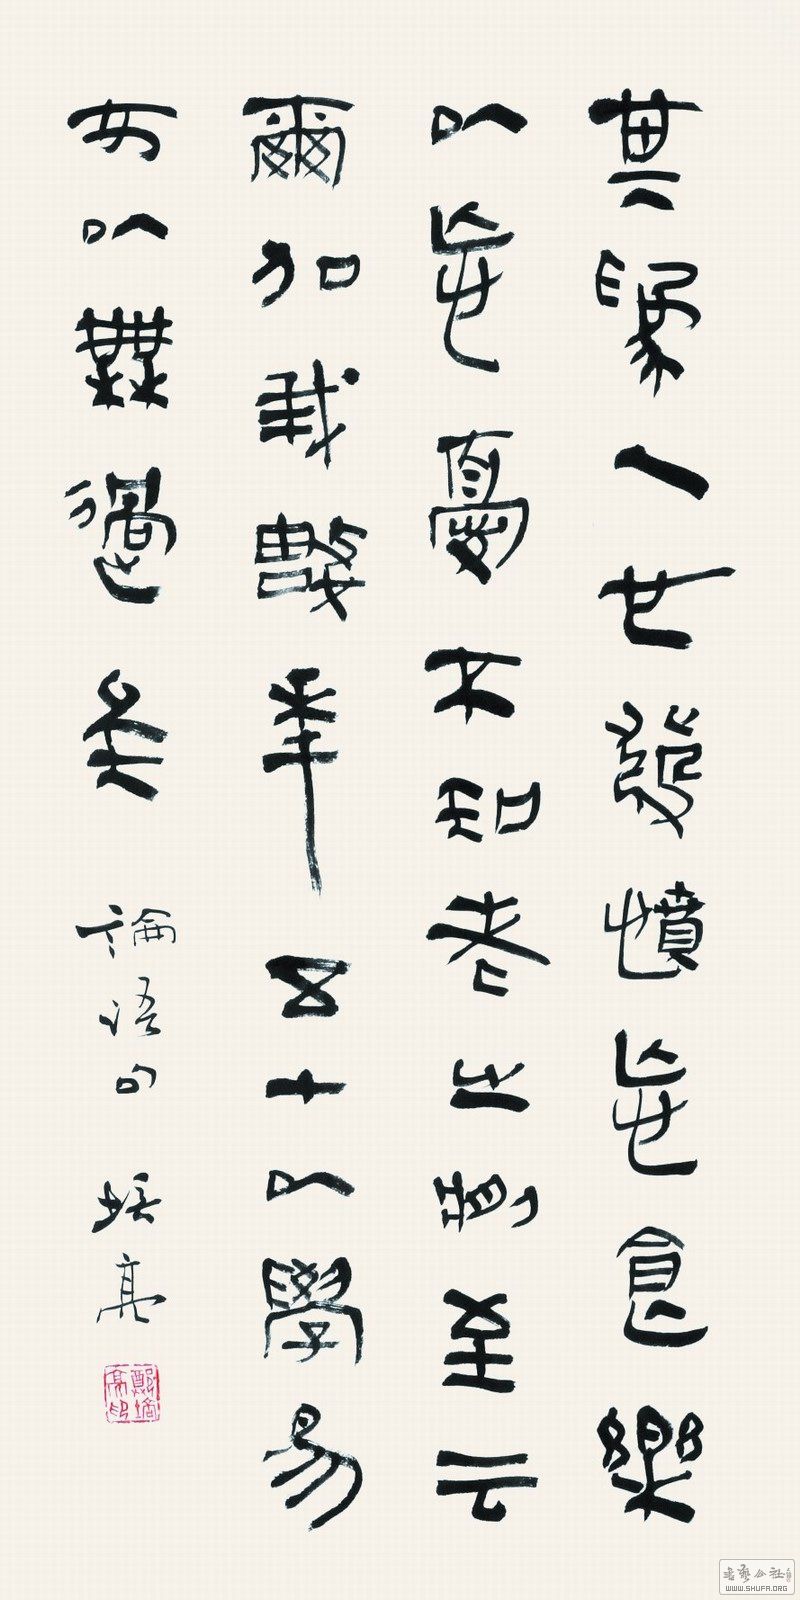 其為人也發憤忘食樂
以忘憂不知老之將至云
爾加我數年五十以學易
可以無過矣 論語句 培亮
鄭培亮印
書藝公社
WWW.SHUFA.ORG